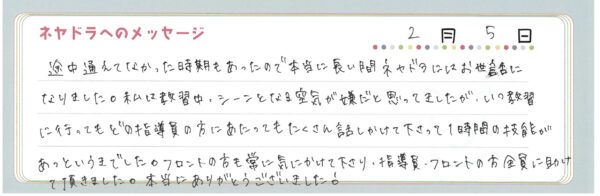 ネヤドラへのメッセージ
2月 5日
途中通えてなかった時期もあったので本当に長い間ネヤドラにはお世話に
なりました。私は教習中、シーンとなる空気が嫌だと思ってましたが、いつ教習
に行ってもどの指導員の方にあたってもたくさん話しかけて下さって1時間の技能が
あっというまでした。フロントの方も常に気にかけて下さり、指導員・フロントの方全員に助け
て頂きました。本当にありがとうございました!